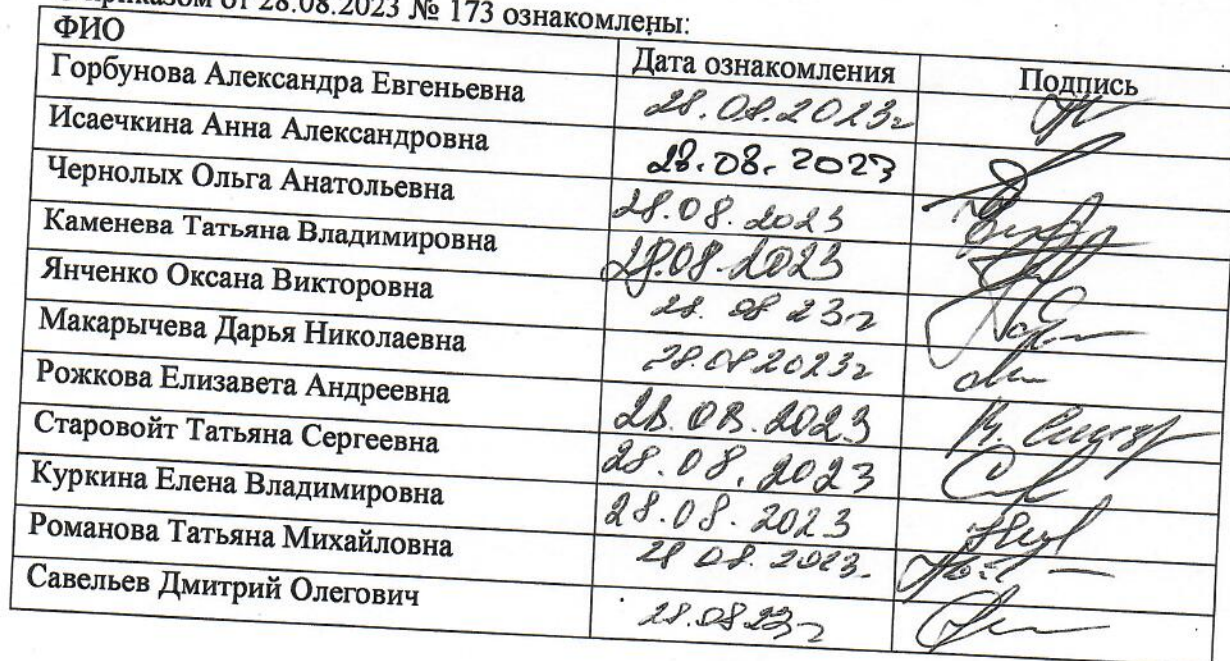 приказом от 28.08.2023 № 173 ознакомлены:
ФИО Дата ознакомления Подпись
Горбунова Александра Евгеньевна 28.08.2023г
Исаечкина Анна Александровна 28.08.2023
Чернолых Ольга Анатольевна 28.08.2023
Каменева Татьяна Владимировна 28.08.2023
Янченко Оксана Викторовна 28.08 23г
Макарычева Дарья Николаевна 28.08 2023г
Рожкова Елизавета Андреевна 28.08.2023
Старовойт Татьяна Сергеевна 28.08.2023
Куркина Елена Владимировна 28.08.2023
Романова Татьяна Михайловна 28 08. 2023.
Савельев Дмитрий Олегович 28.08 23г